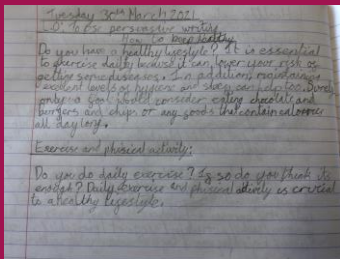 Tuesday 30th March 2021
L.O: To use persuasive writing
How to keep healthy
Do you have a healthy lifestyle? It is essential
to exercise daily because it can lower your risk of
getting some diseases. In addition, maintaining
excellent levels of hygiene and sleep can help too. Surely
only a fool would consider eating chocolate and
burgers and chips or any foods that contain
all day long.
Exercise and phisical activity:
Do you do daily exercise? If so do you think its
enough? Daily exercise and phisical activity is crucial
to a healthy lifestyle.